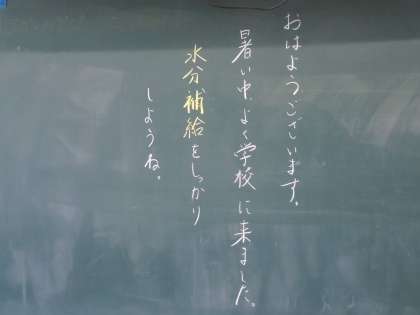 おはようございます。
暑い中、よく学校に来ました。
水分補給をしっかり
しようね。